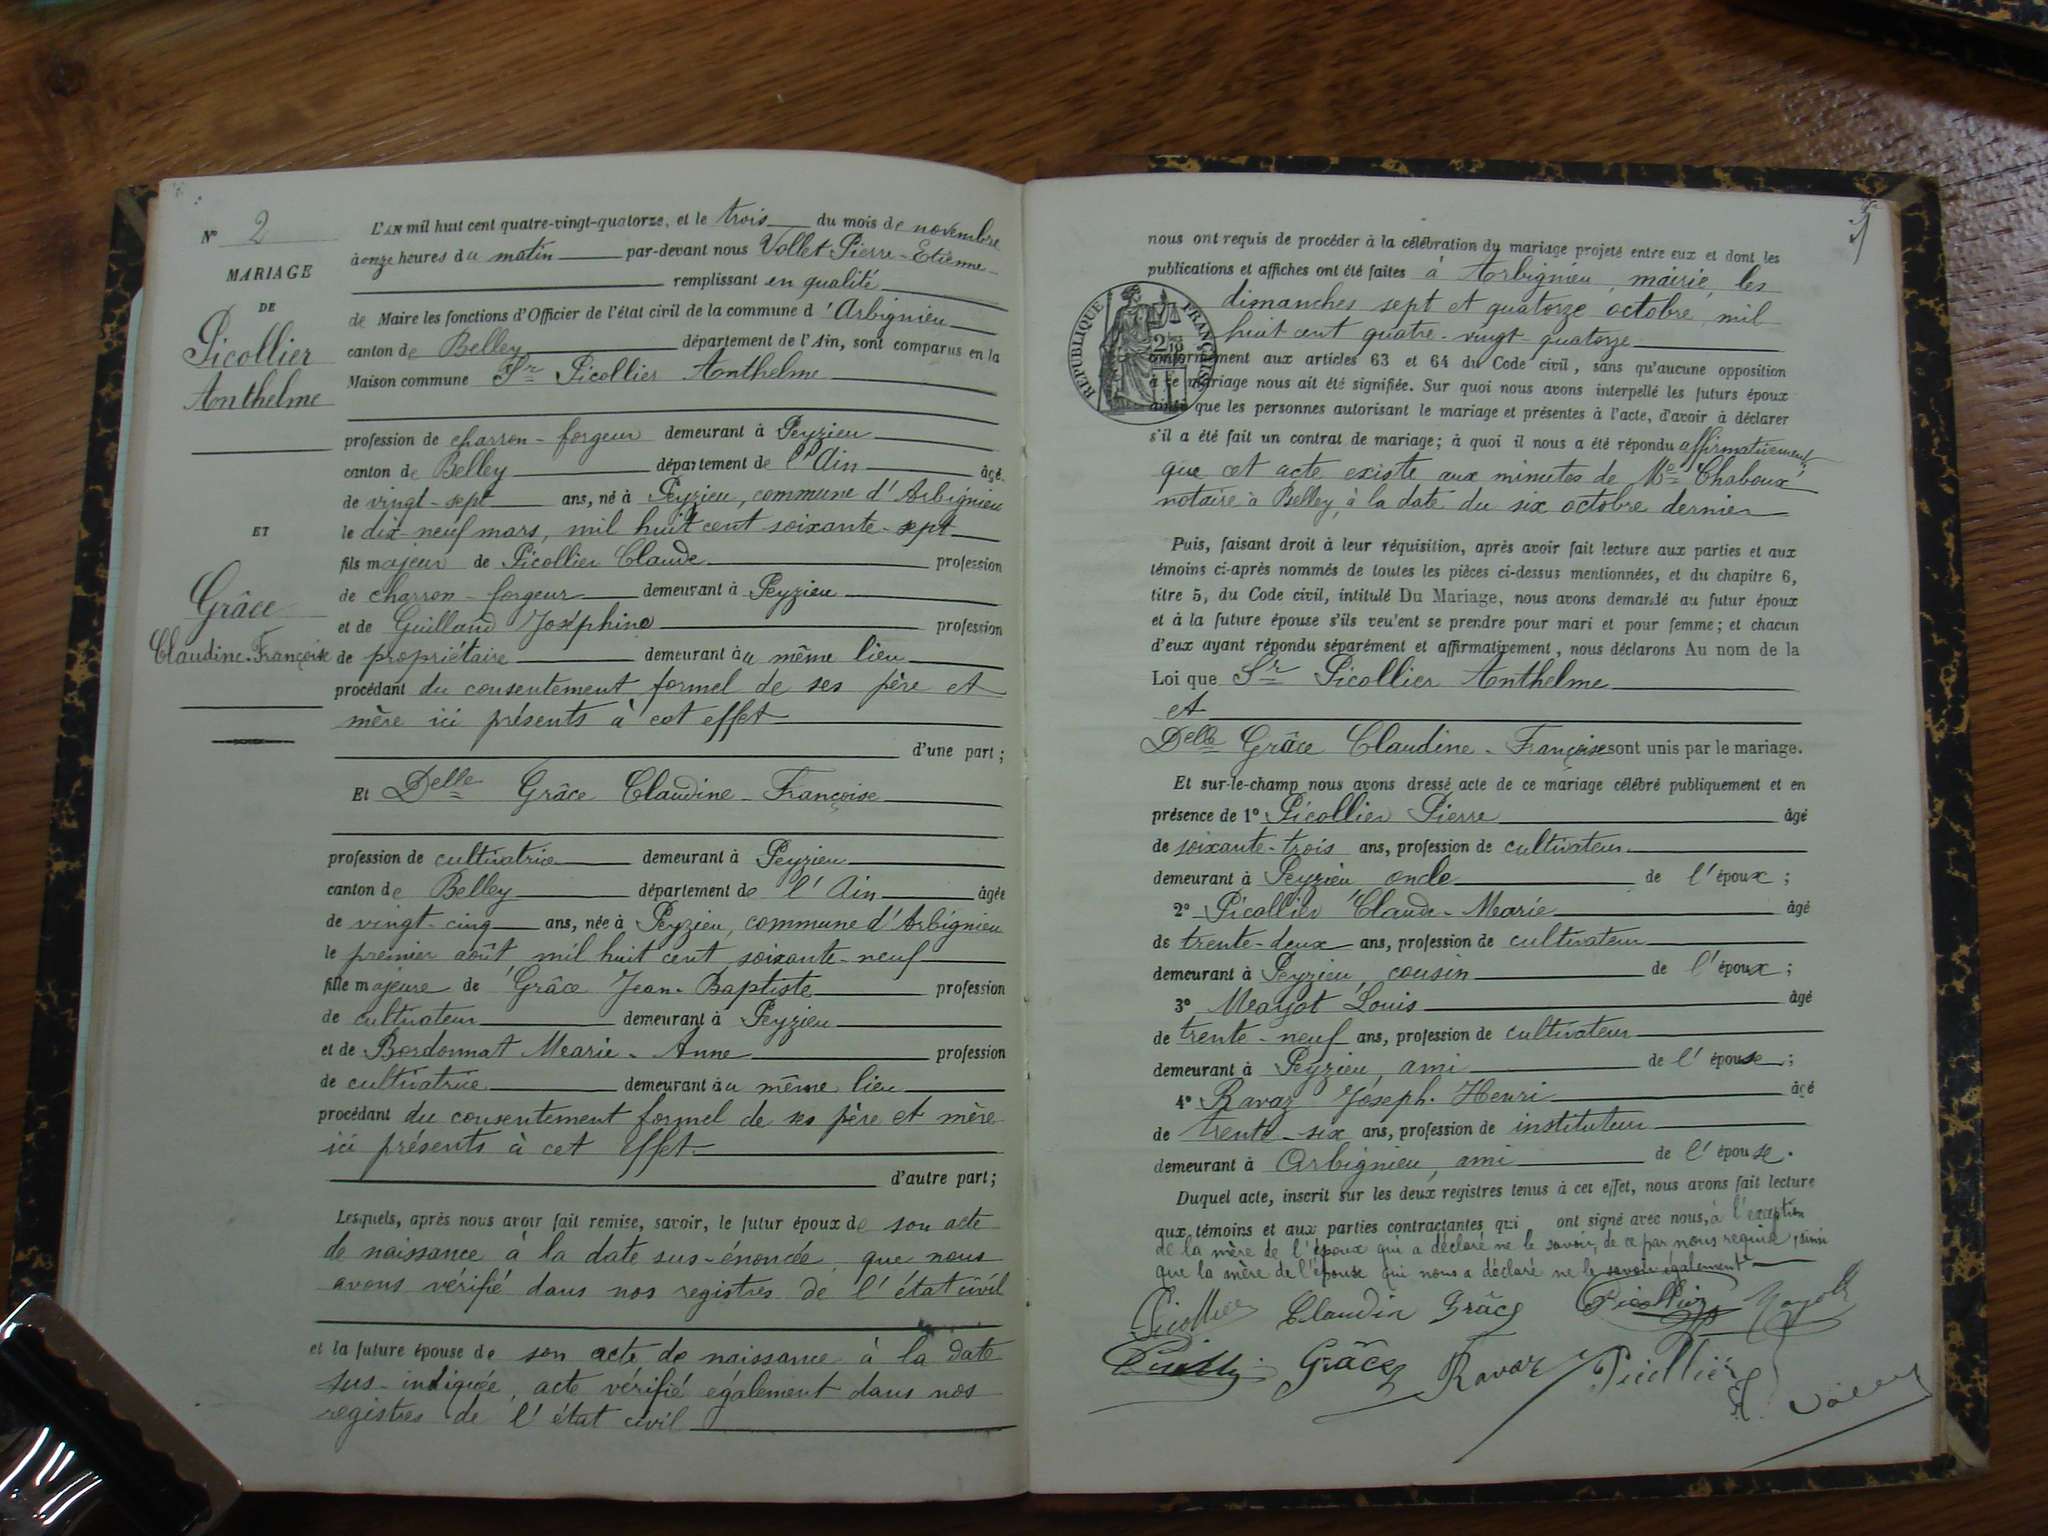 N° 2
MARIAGE
DE
Picollier
Anthelme
ET
Grâce
Claudine-Françoise
L'AN mil huit cent quatre-vingt-quatorze, et le trois du mois de novembre
à onze heures du matin par-devant nous Vollet Pierre-Etienne
remplissant en qualité
de Maire les fonctions d'Officier de l'état civil de la commune d'Arbignieu
canton de Belley département de l'Ain, sont comparus en la
Maison commune Sr Picollier Anthelme
profession de charron-forgeur demeurant à Peyzieu
canton de Belley département de l'Ain âgé
de vingt-sept ans, né à Peyzieu, commune d'Arbignieu
le dix-neuf mars, mil huit cent soixante-sept
fils majeur de Picollier Claude profession
de charron-forgeur demeurant à Peyzieu
et de Guilland Joséphine profession
de propriétaire demeurant au même lieu
procédant du consentement formel de ses père et
mère ici présents à cet effet
d'une part ;
Et Delle Grâce Claudine-Françoise
profession de cultivatrice demeurant à Peyzieu
canton de Belley département de l'Ain âgée
de vingt-cinq ans, née à Peyzieu, commune d'Arbignieu
le premier août mil huit cent soixante-neuf
fille majeure de Grâce Jean-Baptiste profession
de cultivateur demeurant à Peyzieu
et de Bordonnat Marie-Anne profession
de cultivatrice demeurant au même lieu
procédant du consentement formel de ses père et mère
ici présents à cet effet
d'autre part ;
Lesquels, après nous avoir fait remise, savoir, le futur époux de son acte
de naissance à la date sus-énoncée que nous
avons vérifié dans nos registres de l'état civil
et la future épouse de son acte de naissance à la date
sus-indiquée, acte vérifié également dans nos
registres de l'état civil
nous ont requis de procéder à la célébration du mariage projeté entre eux et dont les
publications et affiches ont été faites à Arbignieu, mairie, les
dimanches sept et quatorze octobre, mil
huit cent quatre-vingt-quatorze
RÉPUBLIQUE FRANÇAISE
conformément aux articles 63 et 64 du Code civil, sans qu'aucune opposition
à ce mariage nous ait été signifiée. Sur quoi nous avons interpellé les futurs époux
ainsi que les personnes autorisant le mariage et présentes à l'acte, d'avoir à déclarer
s'il a été fait un contrat de mariage ; à quoi il nous a été répondu affirmativement,
que cet acte existe aux minutes de Me Chaboux,
notaire à Belley, à la date du six octobre dernier
Puis, faisant droit à leur réquisition, après avoir fait lecture aux parties et aux
témoins ci-après nommés de toutes les pièces ci-dessus mentionnées, et du chapitre 6,
titre 5, du Code civil, intitulé Du Mariage, nous avons demandé au futur époux
et à la future épouse s'ils veulent se prendre pour mari et pour femme ; et chacun
d'eux ayant répondu séparément et affirmativement, nous déclarons Au nom de la
Loi que Sr Picollier Anthelme
et
Delle Grâce Claudine-Françoise sont unis par le mariage.
Et sur-le-champ nous avons dressé acte de ce mariage célébré publiquement et en
présence de 1° Picollier Pierre âgé
de soixante-trois ans, profession de cultivateur
demeurant à Peyzieu oncle de l'époux ;
2° Picollier Claude-Marie âgé
de trente-deux ans, profession de cultivateur
demeurant à Peyzieu, cousin de l'époux ;
3° Mayot Louis âgé
de trente-neuf ans, profession de cultivateur
demeurant à Peyzieu, ami de l'épouse ;
4° Ravaz Joseph-Henri âgé
de trente-six ans, profession de instituteur
demeurant à Arbignieu, ami de l'épouse.
Duquel acte, inscrit sur les deux registres tenus à cet effet, nous avons fait lecture
aux témoins et aux parties contractantes qui ont signé avec nous, à l'exception
de la mère de l'époux qui a déclaré ne le savoir, de ce par nous requise, ainsi
que la mère de l'épouse qui nous a déclaré ne le savoir également
Picollier Claudin Grâce Picollier
Grâce Ravaz Picollier